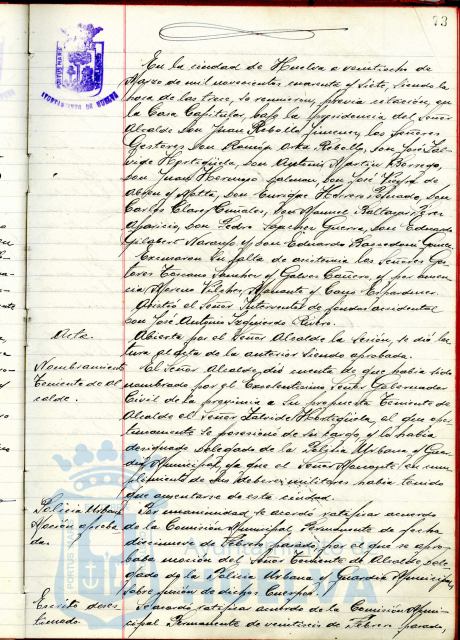 73
PORTUS MARIS
AYUNTAMIENTO DE HUELVA
En la ciudad de Huelva a veintiocho de
Marzo de mil novecientos cuarenta y siete, siendo la
hora de las trece, se reunieron, previa citación, en
la Casa Capitular, bajo la presidencia del Señor
Alcalde Don Juan Rebollo Jimenez, los Señores
Gestores Don Ramón Orta Rebollo, Don José Zal-
vide Hortigüela, Don Antonio Martin Borrego,
Don Juan Hermoso, Don José de
y Matta, Don Enrique Herrera, Don
Carlos, Don Manuel Baltazar
Aparicio, Don Pedro Guerra, Don Eduardo
Gilabert Naranjo y Don Eduardo
Excusaron su falta de asistencia los Señores Ges-
tores Toscano Sanchez y Galvez Cañero, y por ausen-
cia Moreno Vilchez, y
Asistió el Señor Interventor de fondos accidental
Don José Antonio Izquierdo Rivero.
Acta. Abierta por el Señor Alcalde la Sesión, se dió lec-
tura al acta de la anterior siendo aprobada.
Nombramiento El Señor Alcalde, dió cuenta de que habia sido
Teniente de Al nombrado por el Excelentisimo Señor Gobernador
calde. Civil de la provincia a su propuesta Teniente de
Alcalde el Señor Zalvide Hortigüela, al que opor-
tunamente se posesionó de su cargo, y lo habia
designado Delegado de la Policia Urbana y Guar-
dia Municipal, ya que el Señor en cum-
plimiento de sus deberes militares habia tenido
que ausentarse de esta ciudad.
Policia Urbana Por unanimidad, se acordó ratificar acuerdo
Moción aproba de la Comisión Municipal Permanente de fecha
da. diecinueve de Febrero pasado, por el que se apro-
baba moción del Señor Teniente de Alcalde, Dele-
gado de la Policia Urbana y Guardia Municipal,
sobre unión de dichos Cuerpos.
Escrito deses Se acordó ratificar acuerdo de la Comisión Muni-
timado cipal Permanente de veintiseis de Febrero pasado,
Ayuntamiento de
HUELVA